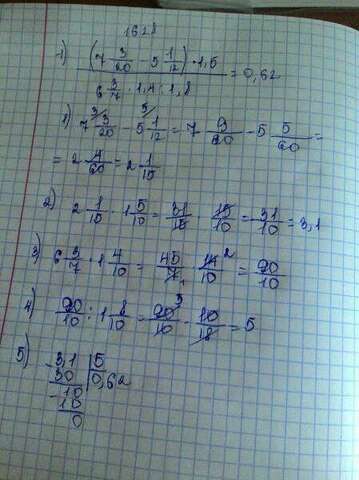 1628
1) ((7 3/20 - 5 1/12) · 1,5) / (6 3/7 · 1,4 : 1,8) = 0,62
1) 7 3/20 - 5 1/12 = 7 9/60 - 5 5/60 =
= 2 4/60 = 2 1/15
2) 2 1/15 · 1 5/10 = 31/15 · 15/10 = 31/10 = 3,1
3) 6 3/7 · 1 4/10 = 45/7 · 14/10 = 90/10
4) 90/10 : 1 8/10 = 90/10 · 10/18 = 5
5) 3,1 | 5
30 | 0,62
-10
10
0